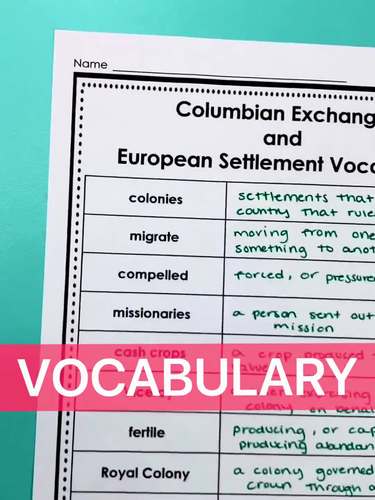 Name
Columbian Exchang
and
European Settlement Voca
colonies
settlements that
country that rule
migrate
moving from one
something to anot
compelled
forced, or pressure
missionaries
a person sent out
mission
cash crops
a crop produced
VOCABULARY
colony on
fertile
producing, or cap
producing abundan
Royal Colony
a colony governed
crown through a